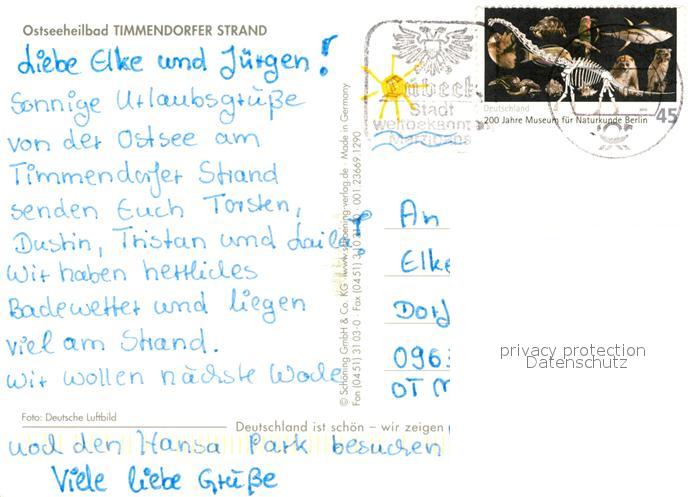 Ostseeheilbad TIMMENDORFER STRAND
Liebe Elke und Jürgen!
Sonnige Urlaubsgrüße
von der Ostsee am
Timmendorfer Strand
senden Euch Torsten,
Dustin, Tristan und
Wir haben herrliches
Badewetter und liegen
viel am Strand.
Wir wollen nächste Woche
Foto: Deutsche Luftbild
Deutschland ist schön – wir zeigen
noch den Hansa Park besuchen
Viele liebe Grüße
© Schöning GmbH & Co. KG · www.schoening-verlag.de · Made in Germany
Fon (0451) 31 03-0 · Fax (0451) · 001 23669 1290
Lübeck
Stadt
weltbekannten
Marzipans
Deutschland
200 Jahre Museum für Naturkunde Berlin
45
An
Elke
Dorf
096
OT M
privacy protection
Datenschutz